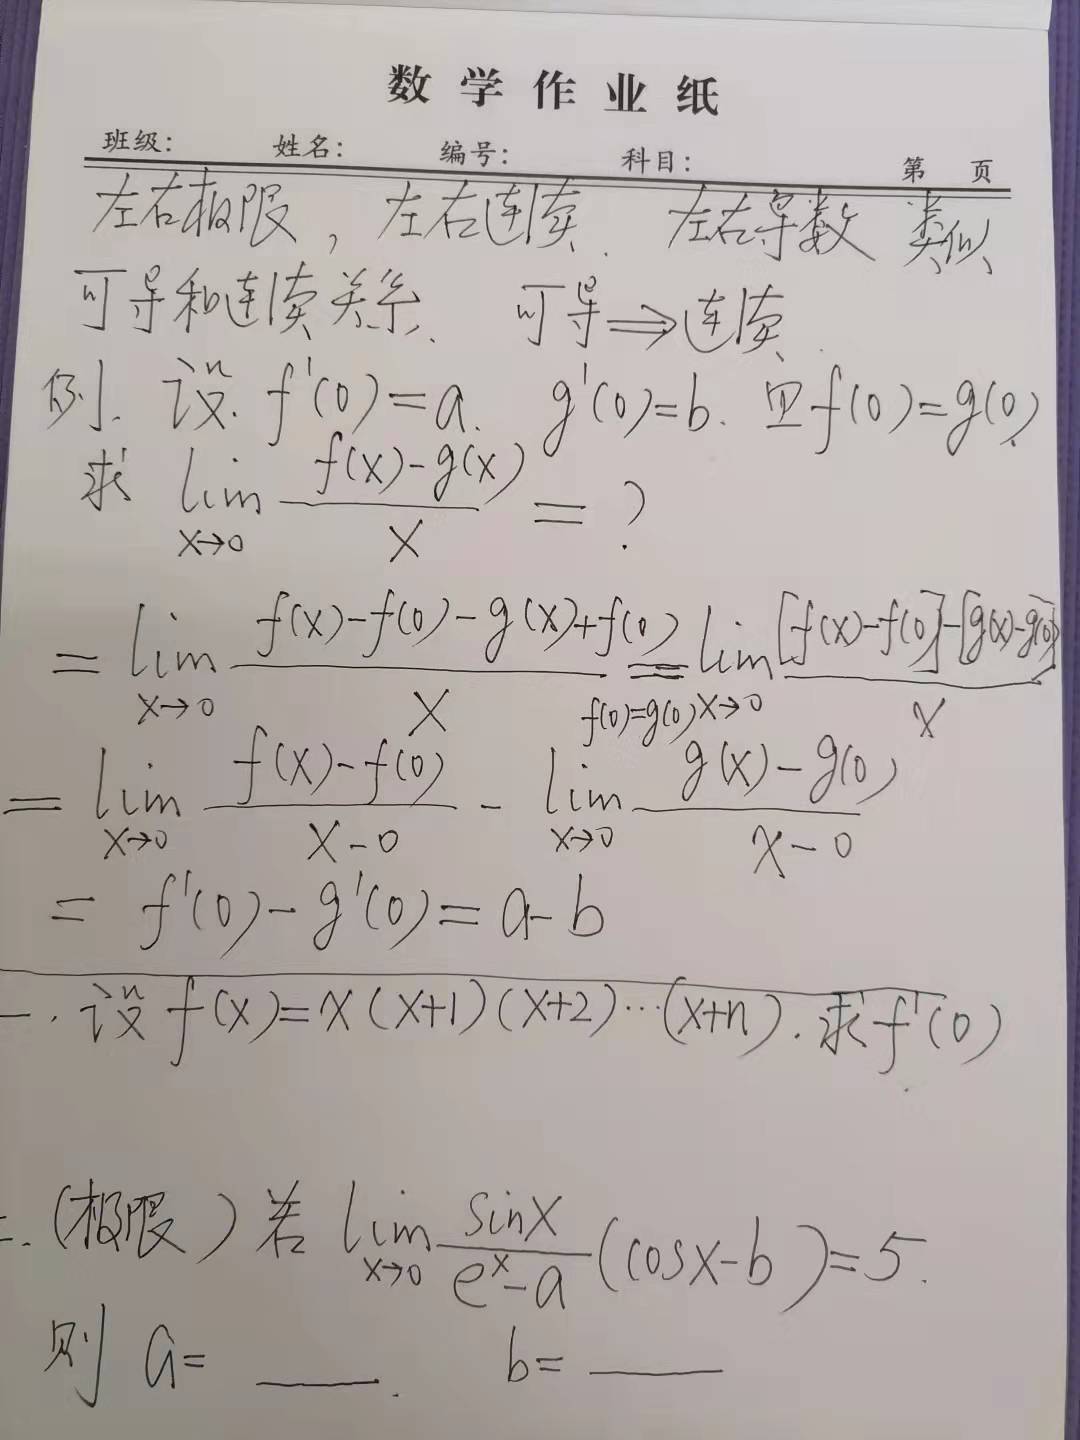 数学作业纸
班级: 姓名: 编号: 科目: 第 页
左右极限, 左右连续. 左右导数 类似
可导和连续关系. 可导⇒连续.
例. 设 f'(0)=a. g'(0)=b. 且f(0)=g(0).
求 lim_{x→0} (f(x)-g(x))/x = ?
= lim_{x→0} (f(x)-f(0)-g(x)+f(0))/x =_{f(0)=g(0)} lim_{x→0} ([f(x)-f(0)]-[g(x)-g(0)])/x
= lim_{x→0} (f(x)-f(0))/(x-0) - lim_{x→0} (g(x)-g(0))/(x-0)
= f'(0)-g'(0)=a-b
一. 设 f(x)=x(x+1)(x+2)…(x+n). 求f'(0)
二. (极限) 若 lim_{x→0} sinx/(e^x-a) (cosx-b)=5.
则 a= ____. b= ____